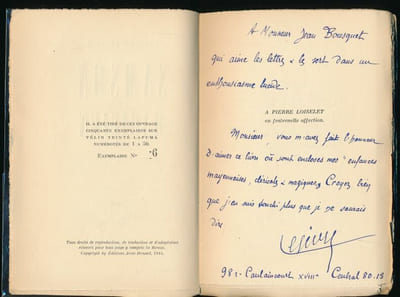 IL A ÉTÉ TIRÉ DE CET OUVRAGE
CINQUANTE EXEMPLAIRES SUR
VÉLIN TEINTÉ LAFUMA
NUMÉROTÉS DE 1 A 50.
EXEMPLAIRE N° 26
Tous droits de reproduction, de traduction et d'adaptation
réservés pour tous pays y compris la Russie.
Copyright by Éditions Jean-Renard, 1944.
A Monsieur Jean Bousquet
qui aime les lettres & le sert dans un
enthousiasme lucide.
A PIERRE LOISELET
en fraternelle affection.
Monsieur, vous m'avez fait l'honneur
d'aimer ce livre où sont encloses mes "enfances
mayennaises, cléricales & magiques". Croyez bien
que j'en suis touché plus que je ne saurais
dire
98 r. Caulaincourt XVIII Central 80.13